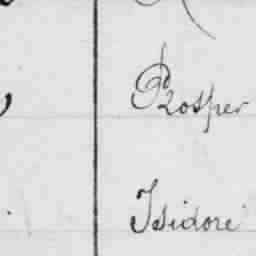 Prosper
Isidore